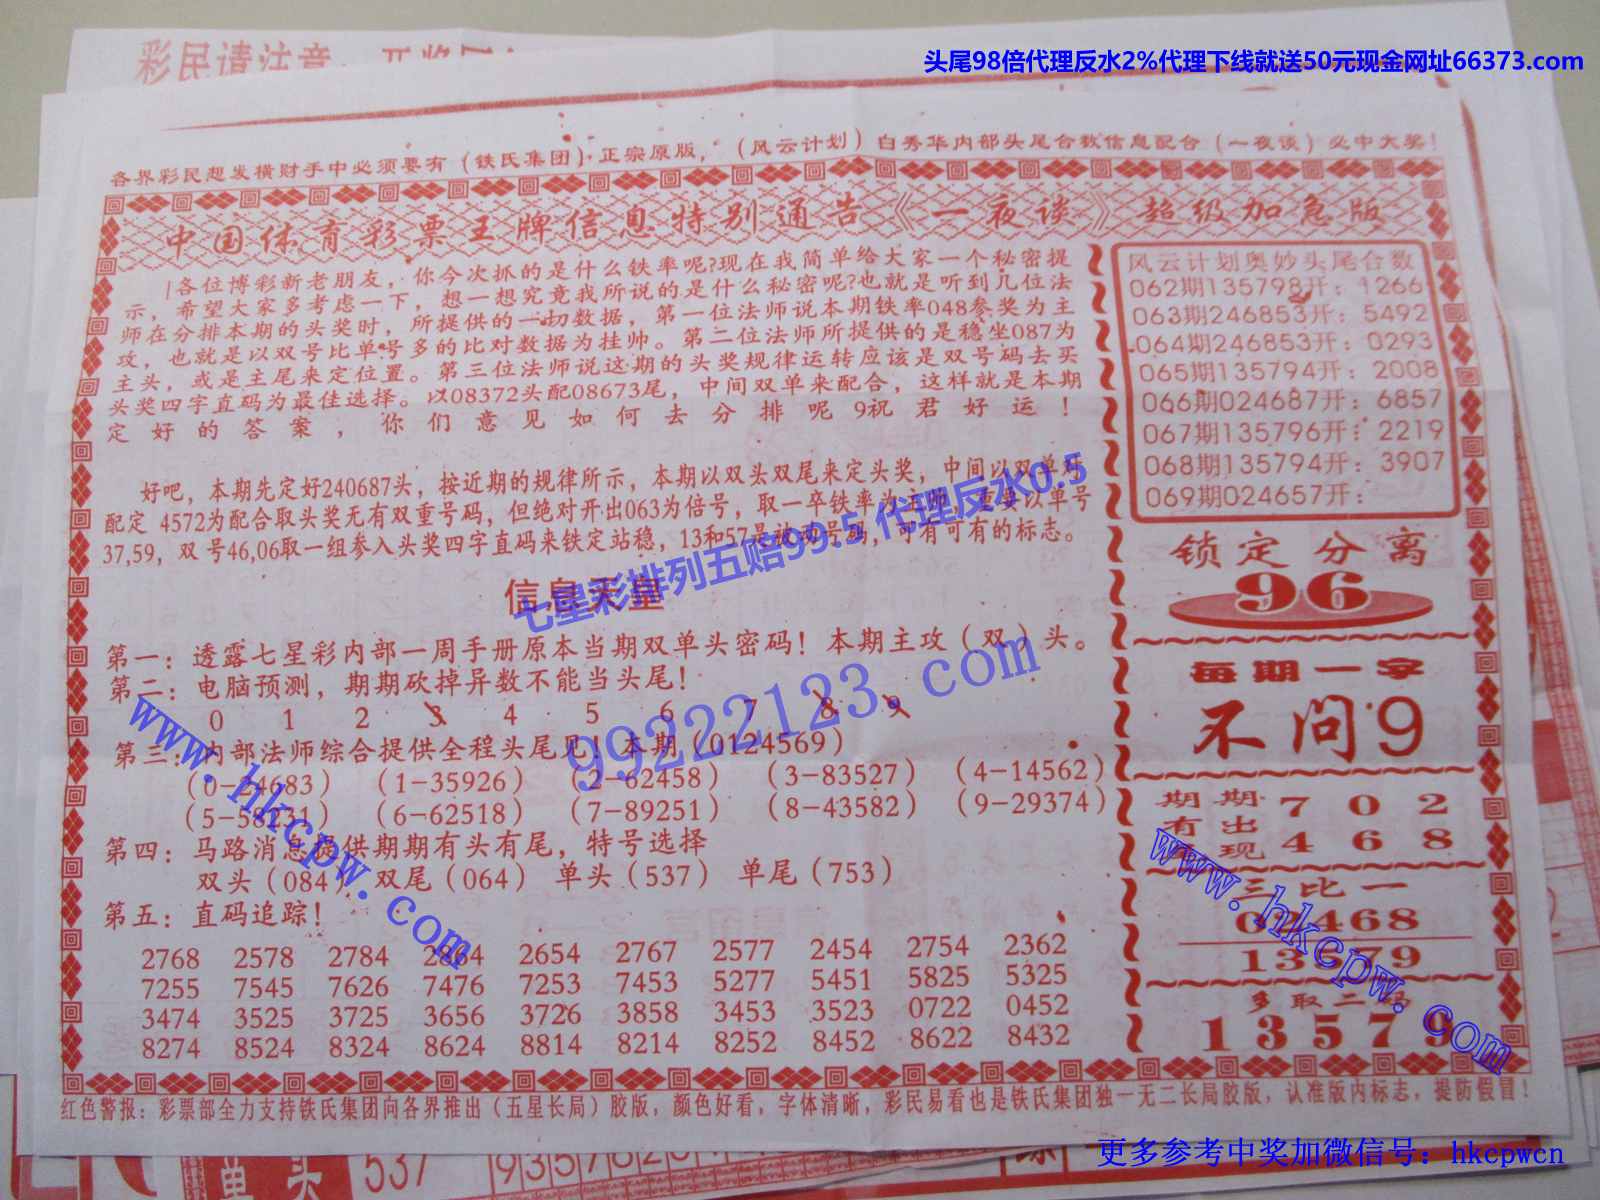 彩民请注意
头尾98倍代理反水2%代理下线就送50元现金网址66373.com
各界彩民想发横财手中必须要有（铁氏集团）正宗原版，（风云计划）白秀华内部头尾合数信息配合（一夜谈）必中大奖！
中国体育彩票王牌信息特别通告《一夜谈》超级加急版
各位博彩新老朋友，你今次抓的是什么铁率呢?现在我简单给大家一个秘密提
示，希望大家多考虑一下，想一想究竟我所说的是什么秘密呢?也就是听到几位法
师在分排本期的头奖时，所提供的一切数据，第一位法师说本期铁率048参奖为主
攻，也就是以双号比单号多的比对数据为挂帅。第二位法师所提供的是稳坐087为
主头，或是主尾来定位置。第三位法师说这期的头奖规律运转应该是双号码去买
头奖四字直码为最佳选择。以08372头配08673尾，中间双单来配合，这样就是本期
定好的答案，你们意见如何去分排呢9祝君好运！
好吧，本期先定好240687头，按近期的规律所示，本期以双头双尾来定头奖，中间以双单对
配定 4572为配合取头奖无有双重号码，但绝对开出063为倍号，取一卒铁率为 重要以单号
37,59，双号46,06取一组参入头奖四字直码来铁定站稳，13和57是被动号码，可有可有的标志。
七星彩排列五赔99.5 代理反水0.5
信息天皇
第一：透露七星彩内部一周手册原本当期双单头密码！本期主攻（双）头。
第二：电脑预测，期期砍掉异数不能当头尾！
0 1 2 3 4 5 6 7 8 9
99222123.com
www.hkcpw.com
第三：内部法师综合提供全程头尾见！本期（0124569）
（0-24683）（1-35926）（2-62458）（3-83527）（4-14562）
（5-58231）（6-62518）（7-89251）（8-43582）（9-29374）
第四：马路消息提供期期有头有尾，特号选择
双头（084）双尾（064）单头（537）单尾（753）
第五：直码追踪！
2768 2578 2784 2864 2654 2767 2577 2454 2754 2362
7255 7545 7626 7476 7253 7453 5277 5451 5825 5325
3474 3525 3725 3656 3726 3858 3453 3523 0722 0452
8274 8524 8324 8624 8814 8214 8252 8452 8622 8432
风云计划奥妙头尾合数
062期135798开：1266
063期246853开：5492
064期246853开：0293
065期135794开：2008
066期024687开：6857
067期135796开：2219
068期135794开：3907
069期024657开：
锁定分离
96
每期一字
不问9
期期 7 0 2
有出
现 4 6 8
www.hkcpw.com
三比一
02468
13579
多取二码
1 3 5 7 9
红色警报：彩票部全力支持铁氏集团向各界推出（五星长局）胶版，颜色好看，字体清晰，彩民易看也是铁氏集团独一无二长局胶版，认准版内标志，提防假冒！
更多参考中奖加微信号：hkcpwcn
单头 537